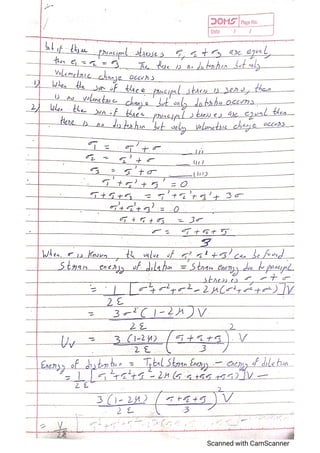 DOMS Page No.
Date / /
but if three principal stresses σ₁, σ₂ & σ₃ are equal,
then σ₁ = σ₂ = σ₃. The there is no distortion but only
volumetric change occurs
1) When the sum of three principal stress is zero, then
is no volumetric change but only distortion occurs
2) When the sum of three principal stresses are equal then
there is no distortion but only volumetric change occurs
σ₁ = σ₁' + σ ——— (i)
σ₂ = σ₂' + σ ——— (ii)
σ₃ = σ₃' + σ ——— (iii)
σ₁' + σ₂' + σ₃' = 0
σ₁ + σ₂ + σ₃ = σ₁' + σ₂' + σ₃' + 3σ
σ₁' + σ₂' + σ₃' = 0
σ₁ + σ₂ + σ₃ = 3σ
σ = (σ₁ + σ₂ + σ₃) / 3
When σ is known, the value of σ₁' σ₂' & σ₃' can be found
Strain energy of dilation = Strain energy due to principal
stresses σ, σ & σ
= 1/2E [σ² + σ² + σ² - 2μ(σ² + σ² + σ²)] V
= 3σ² (1-2μ) V / 2E
Uv = 3(1-2μ)/2E ((σ₁ + σ₂ + σ₃)/3)² V
Energy of distortion = Total Strain Energy - energy of dilation
= 1/2E [σ₁² + σ₂² + σ₃² - 2μ(σ₁σ₂ + σ₂σ₃ + σ₃σ₁)] V -
3(1-2μ)/2E ((σ₁ + σ₂ + σ₃)/3)² V
= V/2E
Scanned with CamScanner